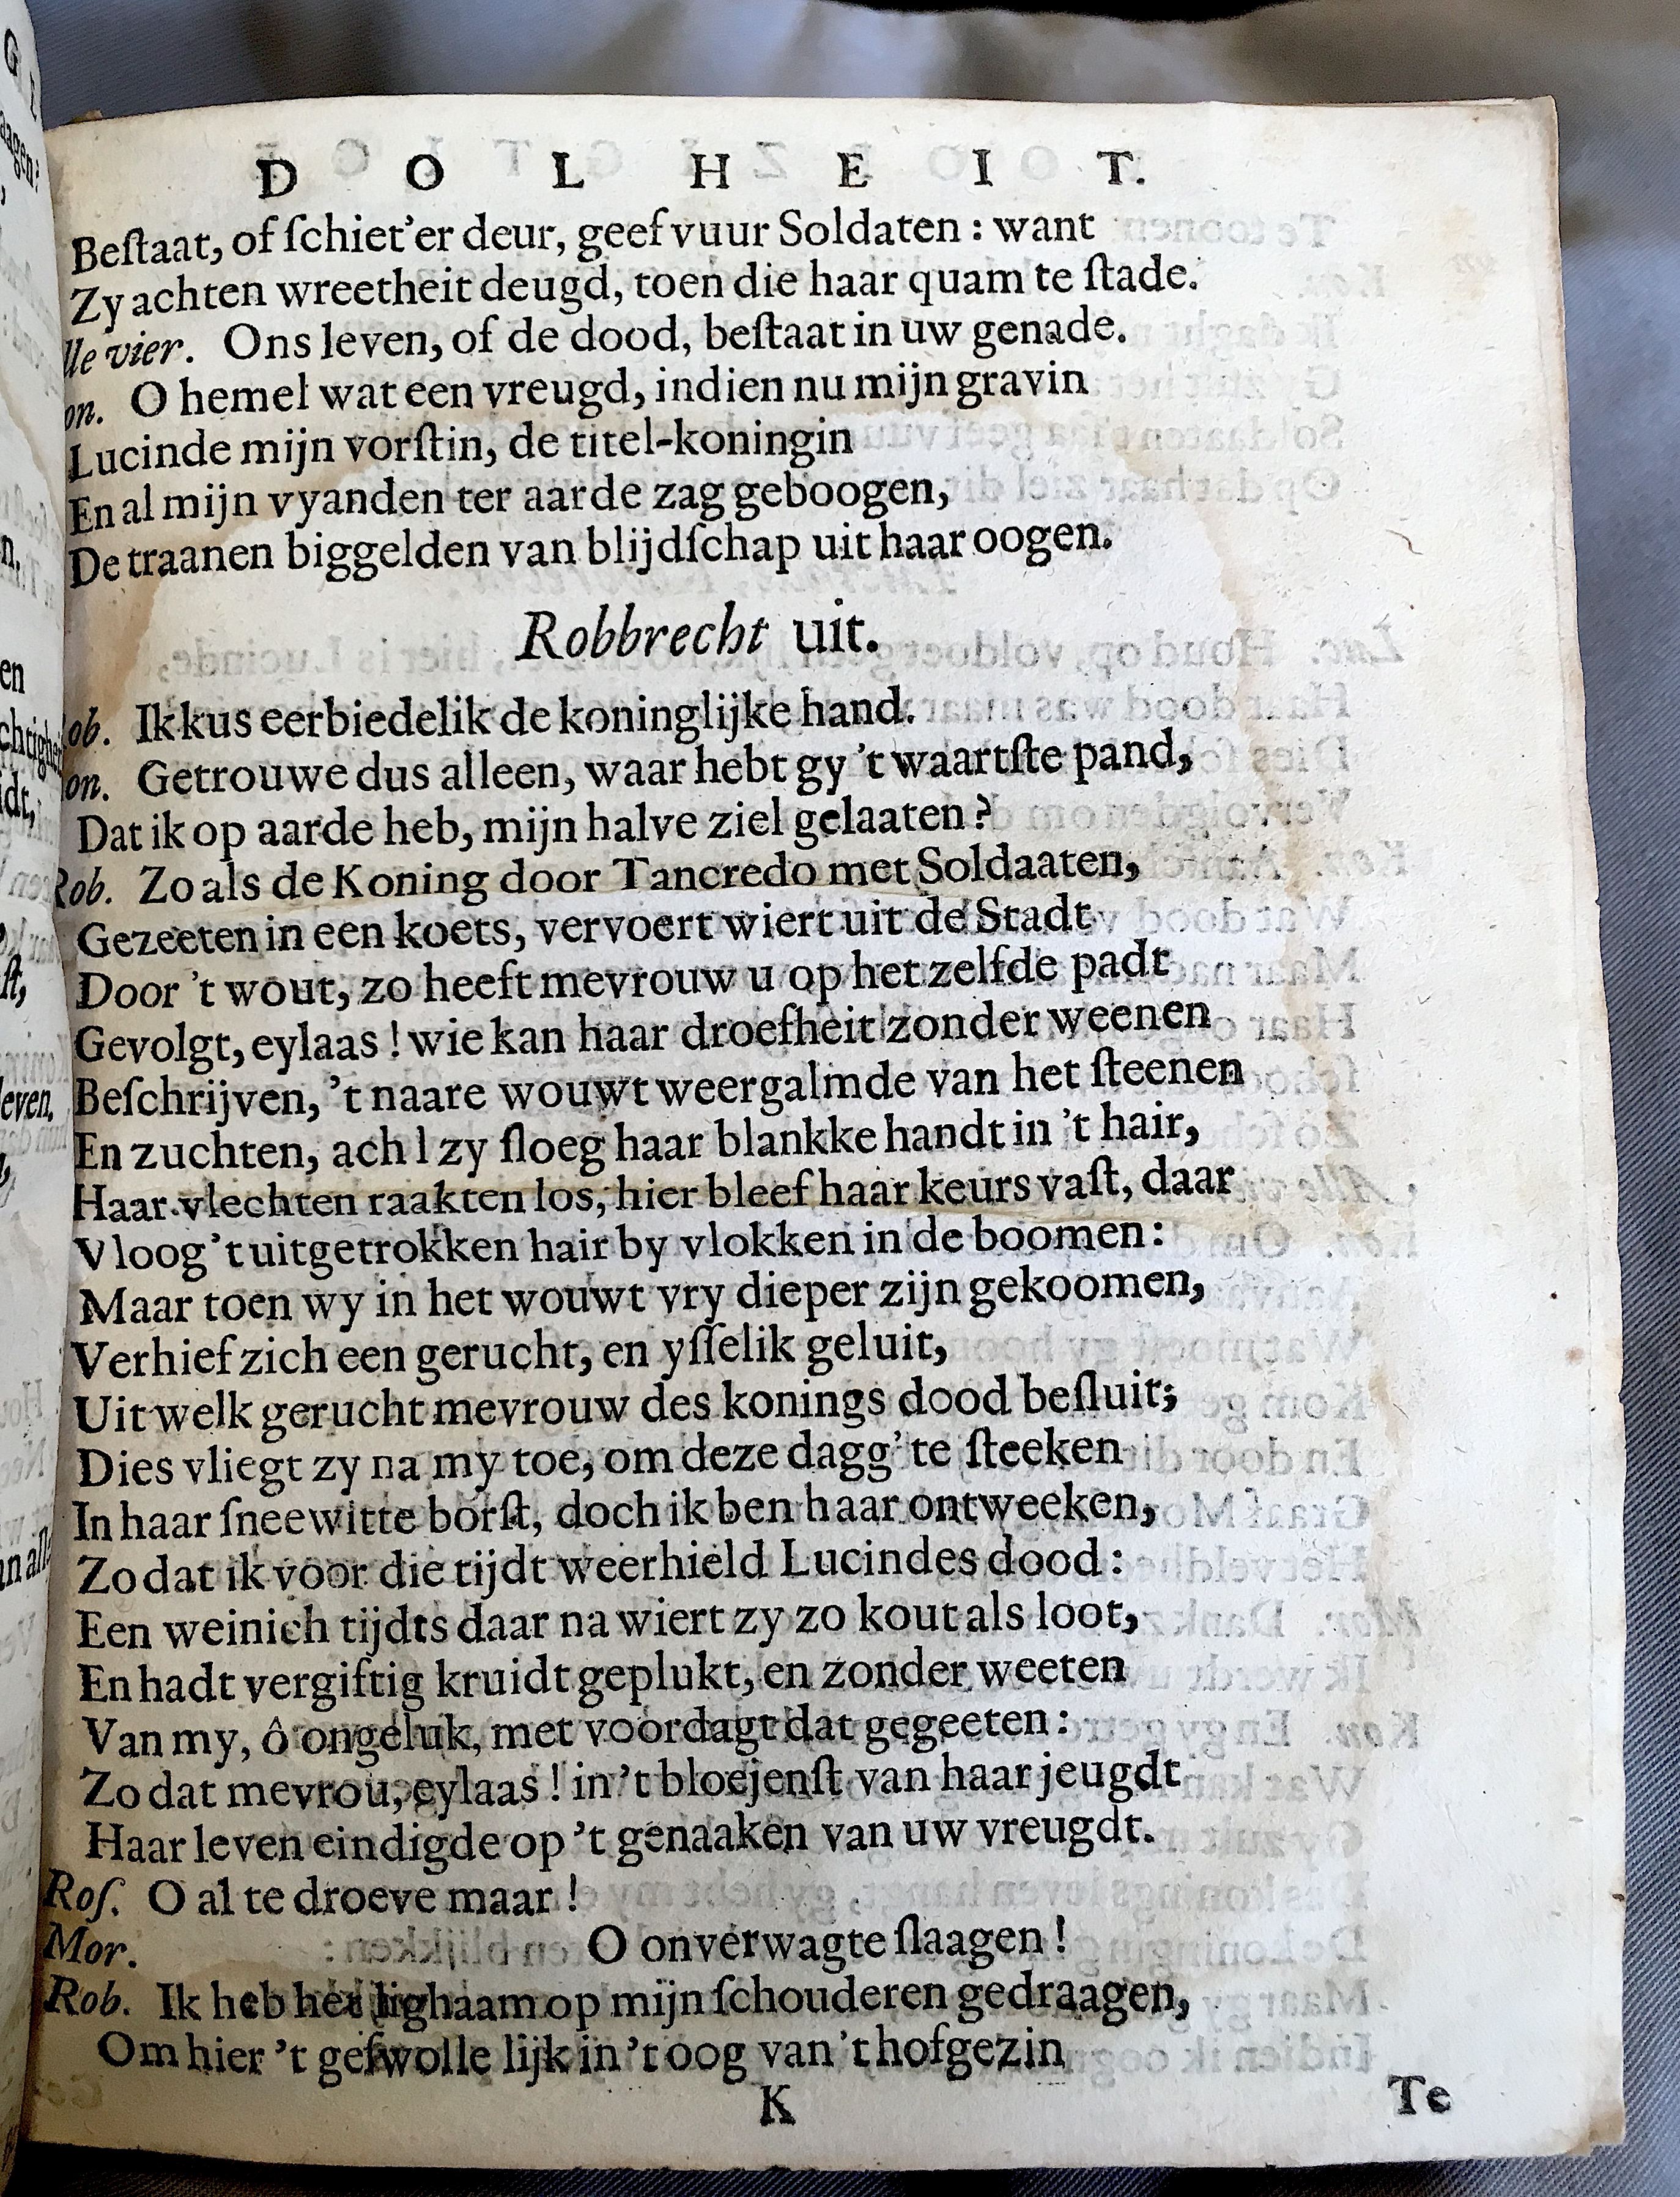 DOLHEIT.
Beſtaat, of ſchiet'er deur, geef vuur Soldaten : want
Zy achten wreetheit deugd, toen die haar quam te ſtade.
lle vier. Ons leven, of de dood, beſtaat in uw genade.
on. O hemel wat een vreugd, indien nu mijn gravin
Lucinde mijn vorſtin, de titel-koningin
En al mijn vyanden ter aarde zag geboogen,
De traanen biggelden van blijdſchap uit haar oogen.
Robbrecht uit.
ob. Ik kus eerbiedelik de koninglijke hand.
on. Getrouwe dus alleen, waar hebt gy 't waartſte pand,
Dat ik op aarde heb, mijn halve ziel gelaaten?
Rob. Zo als de Koning door Tancredo met Soldaaten,
Gezeeten in een koets, vervoert wiert uit de Stadt
Door 't wout, zo heeft mevrouw u op het zelfde padt
Gevolgt, eylaas ! wie kan haar droefheit zonder weenen
Beſchrijven, 't naare wouwt weergalmde van het ſteenen
En zuchten, ach l zy ſloeg haar blankke handt in 't hair,
Haar vlechten raakten los, hier bleef haar keurs vaſt, daar
Vloog 't uitgetrokken hair by vlokken in de boomen :
Maar toen wy in het wouwt vry dieper zijn gekoomen,
Verhief zich een gerucht, en yſſelik geluit,
Uit welk gerucht mevrouw des konings dood beſluit;
Dies vliegt zy na my toe, om deze dagg' te ſteeken
In haar ſneewitte borſt, doch ik ben haar ontweeken,
Zo dat ik voor die tijdt weerhield Lucindes dood :
Een weinich tijdts daar na wiert zy zo kout als loot,
En hadt vergiftig kruidt geplukt, en zonder weeten
Van my, ô ongeluk, met voordagt dat gegeeten :
Zo dat mevrou, eylaas ! in 't bloejenſt van haar jeugdt
Haar leven eindigde op 't genaaken van uw vreugdt.
Roſ. O al te droeve maar !
Mor. O onverwagte ſlaagen !
Rob. Ik heb het lighaam op mijn ſchouderen gedraagen,
Om hier 't geſwolle lijk in 't oog van 't hofgezin
K Te